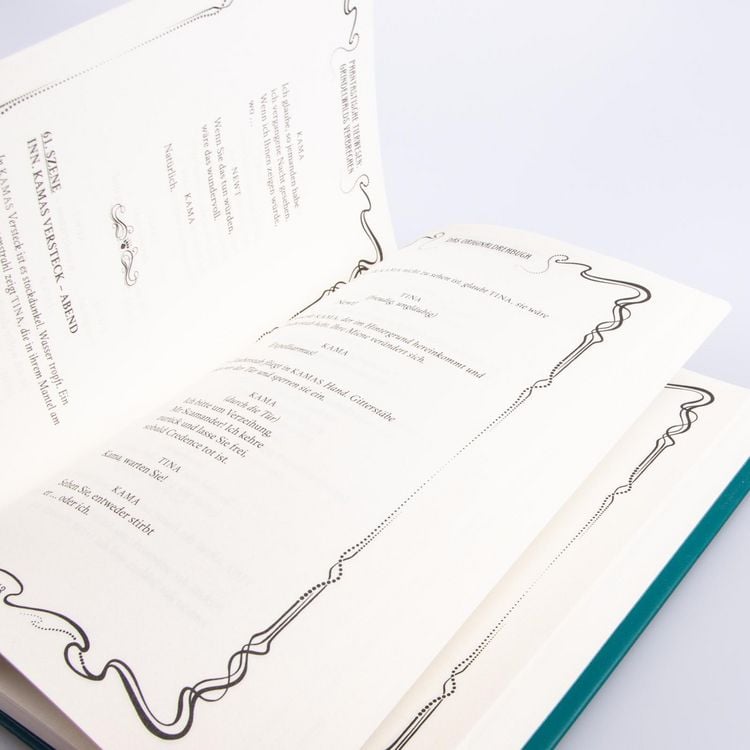 PHANTASTISCHE TIERWESEN:
GRINDELWALDS VERBRECHEN
KAMA
Ich glaube, so jemanden habe
ich vergangene Nacht gesehen.
Wenn ich Ihnen zeigen würde,
wo …
NEWT
Wenn Sie das tun würden,
wäre das wundervoll.
KAMA
Natürlich.
61. SZENE
INN. KAMAS VERSTECK – ABEND
In KAMAS Versteck ist es stockdunkel. Wasser tropft. Ein
zeigt TINA, die in ihrem Mantel am
DAS ORIGINALDREHBUCH
KAMA nicht zu sehen ist, glaubt TINA, sie wäre
TINA
(freudig, ungläubig)
Newt!
KAMA, der im Hintergrund hereinkommt und
hebt. Ihre Miene verändert sich.
KAMA
Expelliarmus!
fliegt in KAMAS Hand. Gitterstäbe
vor der Tür und sperren sie ein.
KAMA
(durch die Tür)
Ich bitte um Verzeihung,
Mr Scamander! Ich kehre
zurück und lasse Sie frei,
sobald Credence tot ist.
TINA
Kama warten Sie!
KAMA
Sehen Sie, entweder stirbt
er … oder ich.